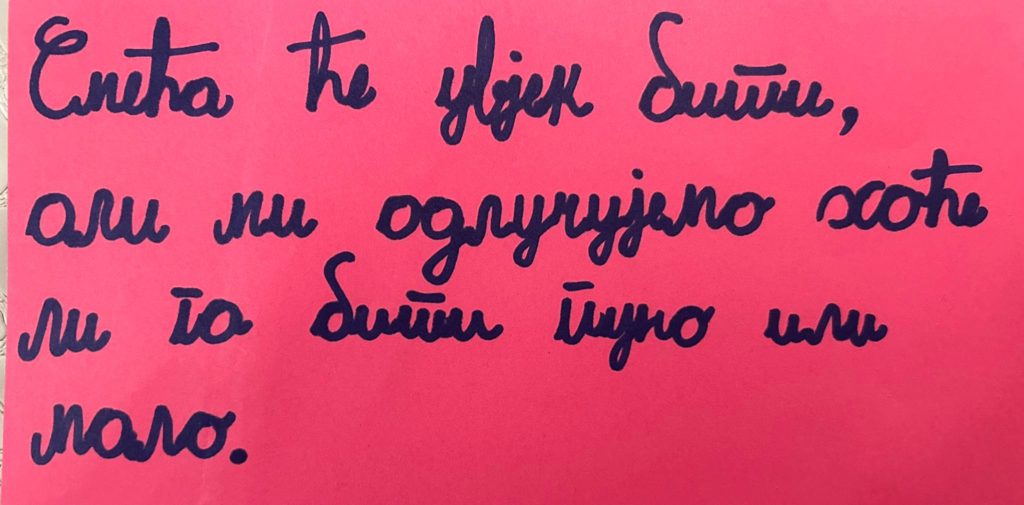 Смећа ће увјек бити,
али ми одлучујемо хоће
ли га бити пуно или
мало.